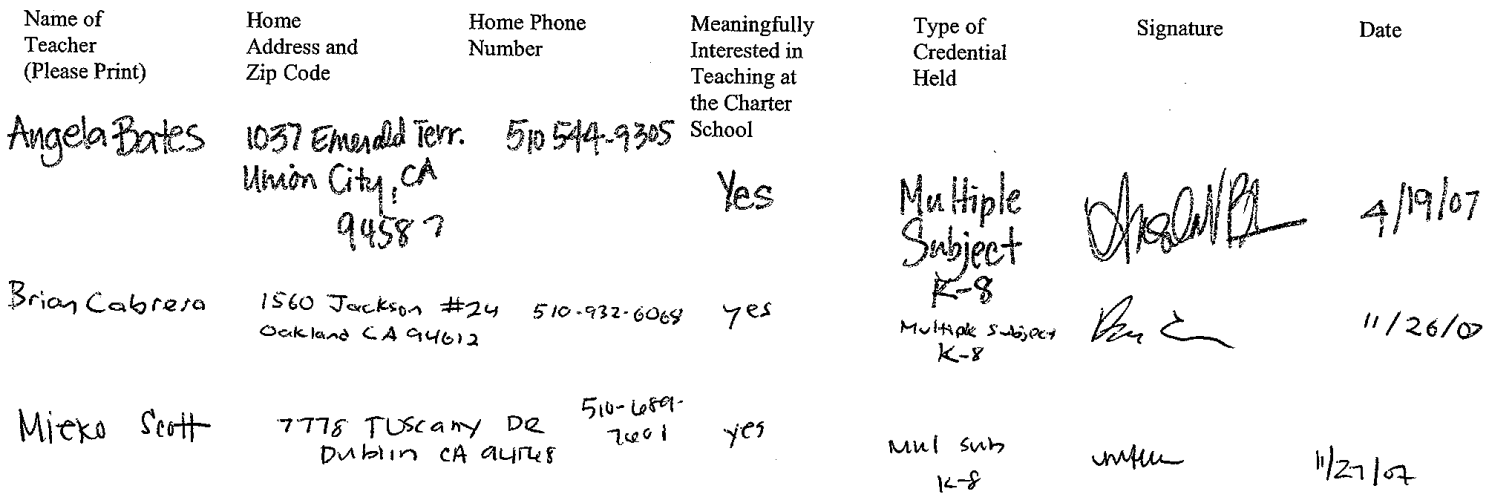 Name of Teacher (Please Print)
Home Address and Zip Code
Home Phone Number
Meaningfully Interested in Teaching at the Charter School
Type of Credential Held
Signature
Date
Angela Bates
1037 Emerald Terr.
Union City, CA
94587
510 544-9305
Yes
Multiple
Subject
K-8
4/19/07
Brian Cabrera
1560 Jackson #24
Oakland CA 94612
510-932-6068
yes
Multiple Subject
K-8
11/26/07
Mieko Scott
7778 Tuscany DR
Dublin CA
510-689-
7601
yes
Mul sub
K-8
11/27/07